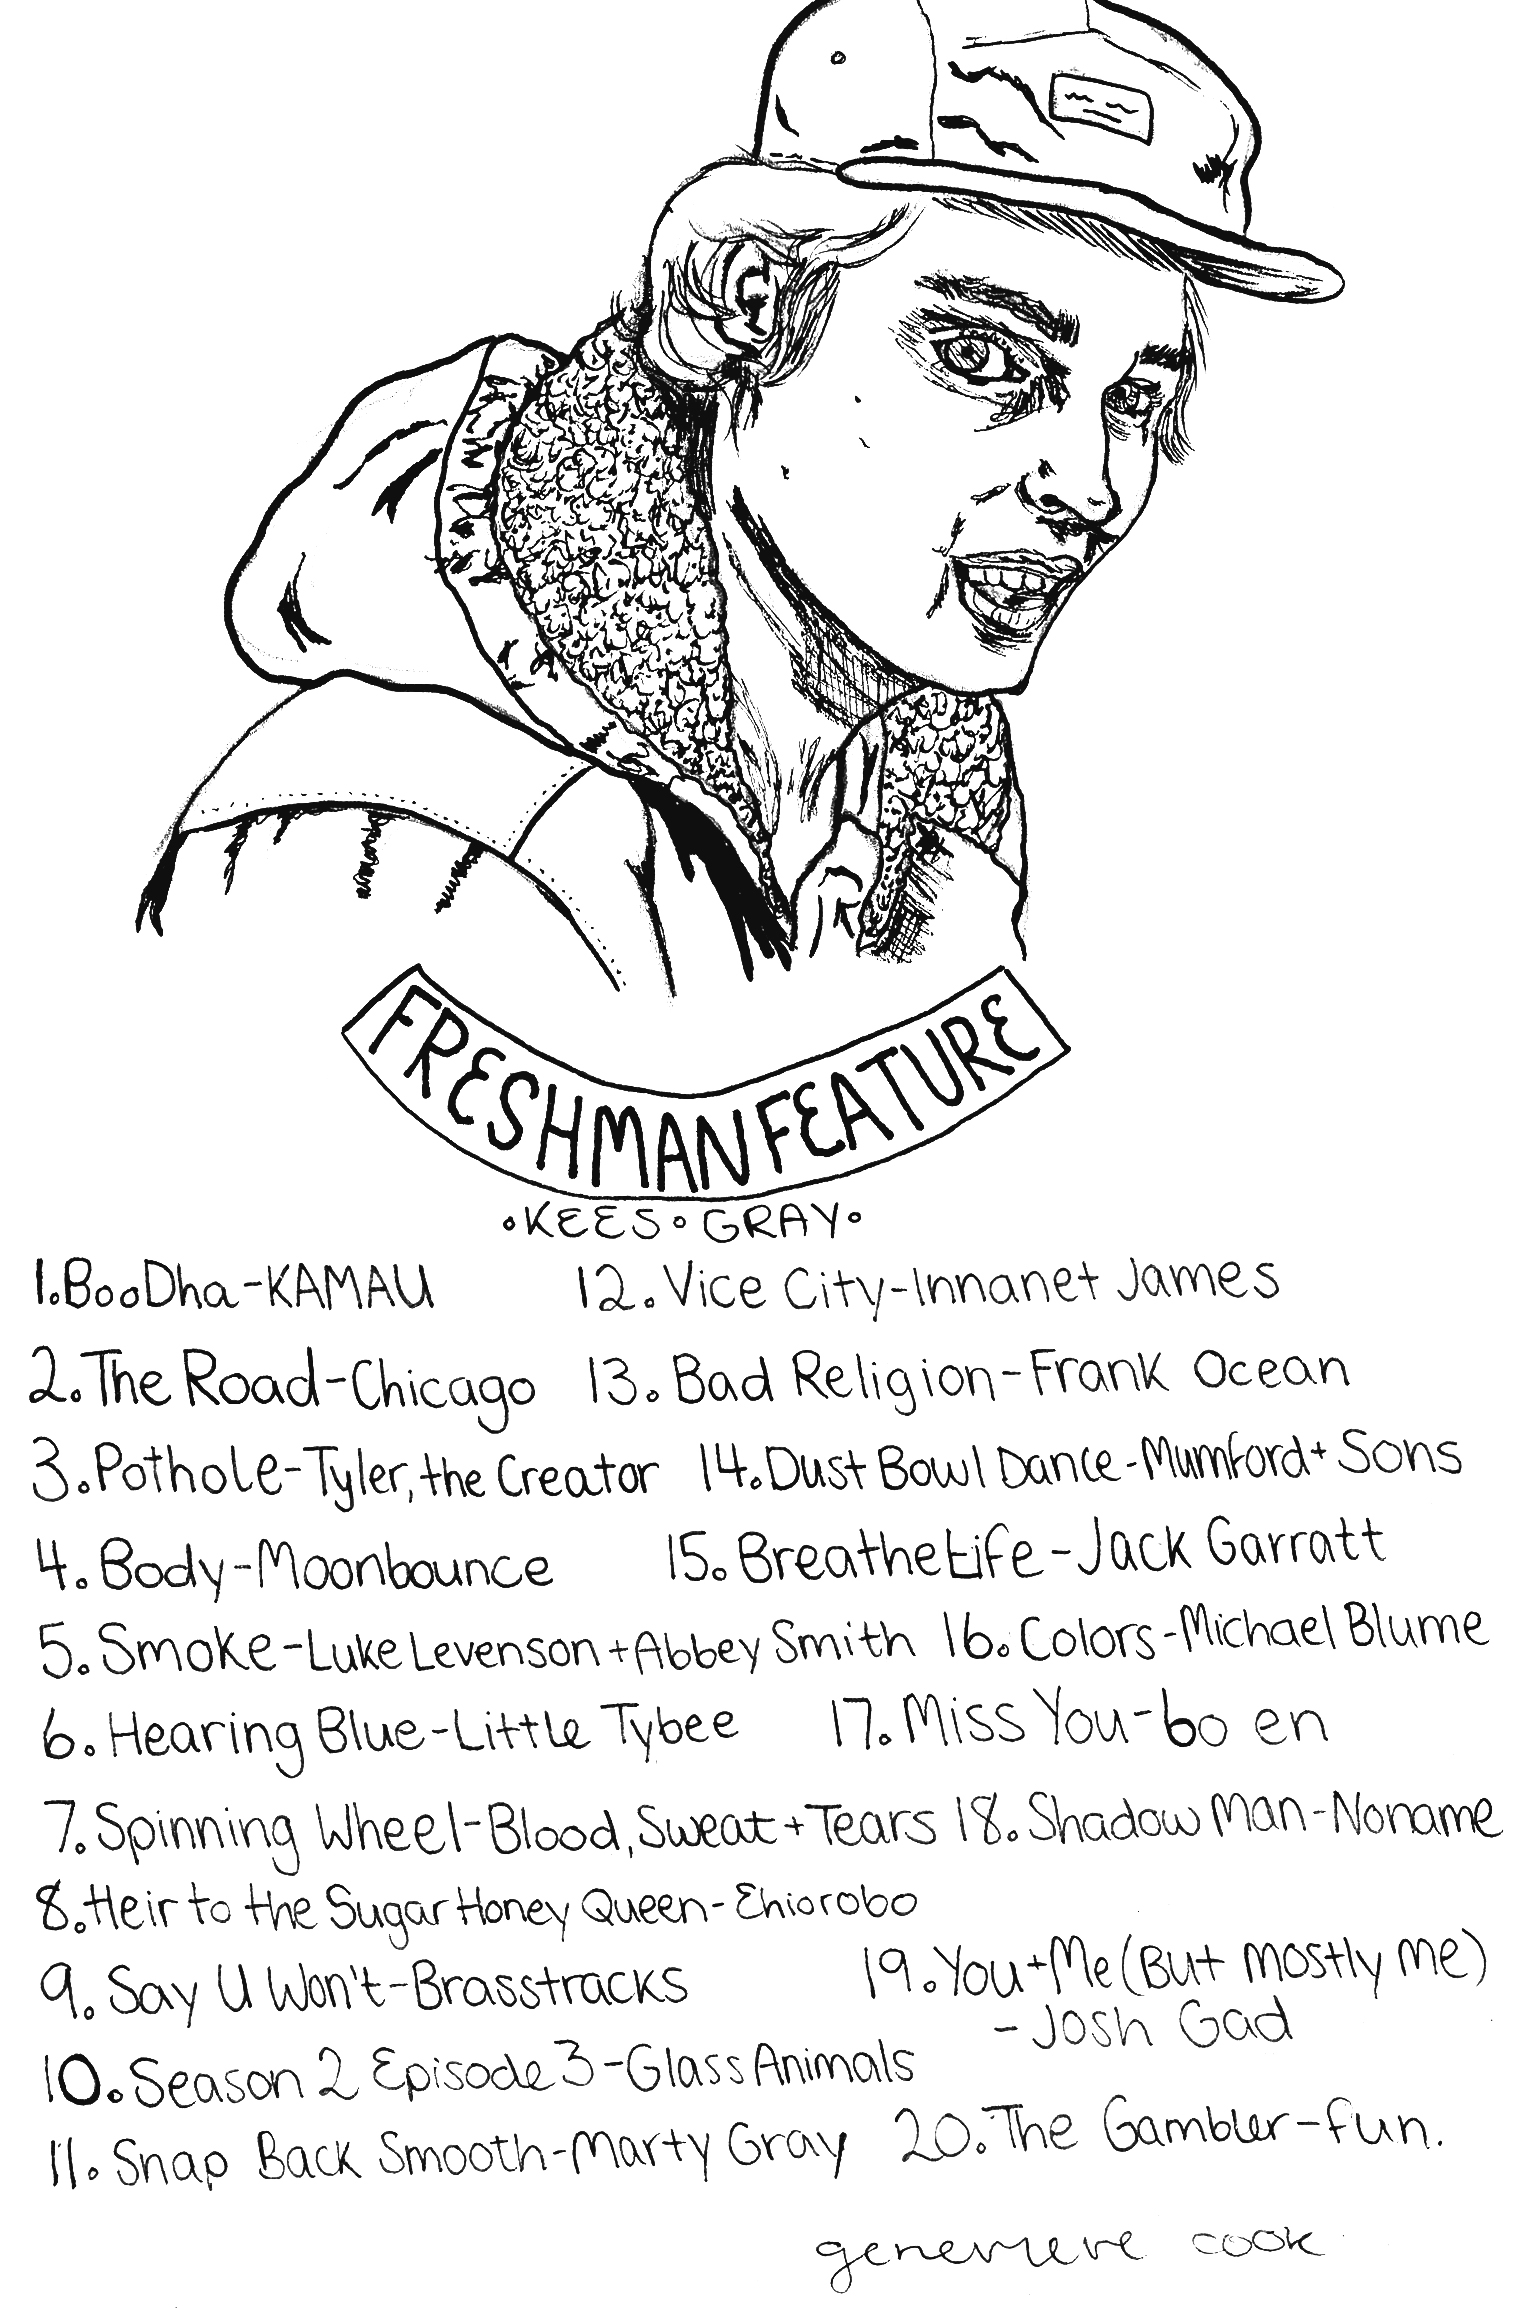 FRESHMAN FEATURE
•KEES•GRAY•
1.BooDha-KAMAU
2.The Road-Chicago
3.Pothole-Tyler, the Creator
4.Body-Moonbounce
5.Smoke-Luke Levenson+Abbey Smith
6.Hearing Blue-Little Tybee
7.Spinning Wheel-Blood, Sweat+Tears
8.Heir to the Sugar Honey Queen-Ehiorobo
9.Say U Won't-Brasstracks
10.Season 2 Episode 3-Glass Animals
11.Snap Back Smooth-Marty Gray
12.Vice City-Innanet James
13.Bad Religion-Frank Ocean
14.Dust Bowl Dance-Mumford+Sons
15.Breathe Life-Jack Garratt
16.Colors-Michael Blume
17.Miss You-bo en
18.Shadow Man-Noname
19.You+Me (But mostly me)
-Josh Gad
20.The Gambler-fun.
genevieve cook